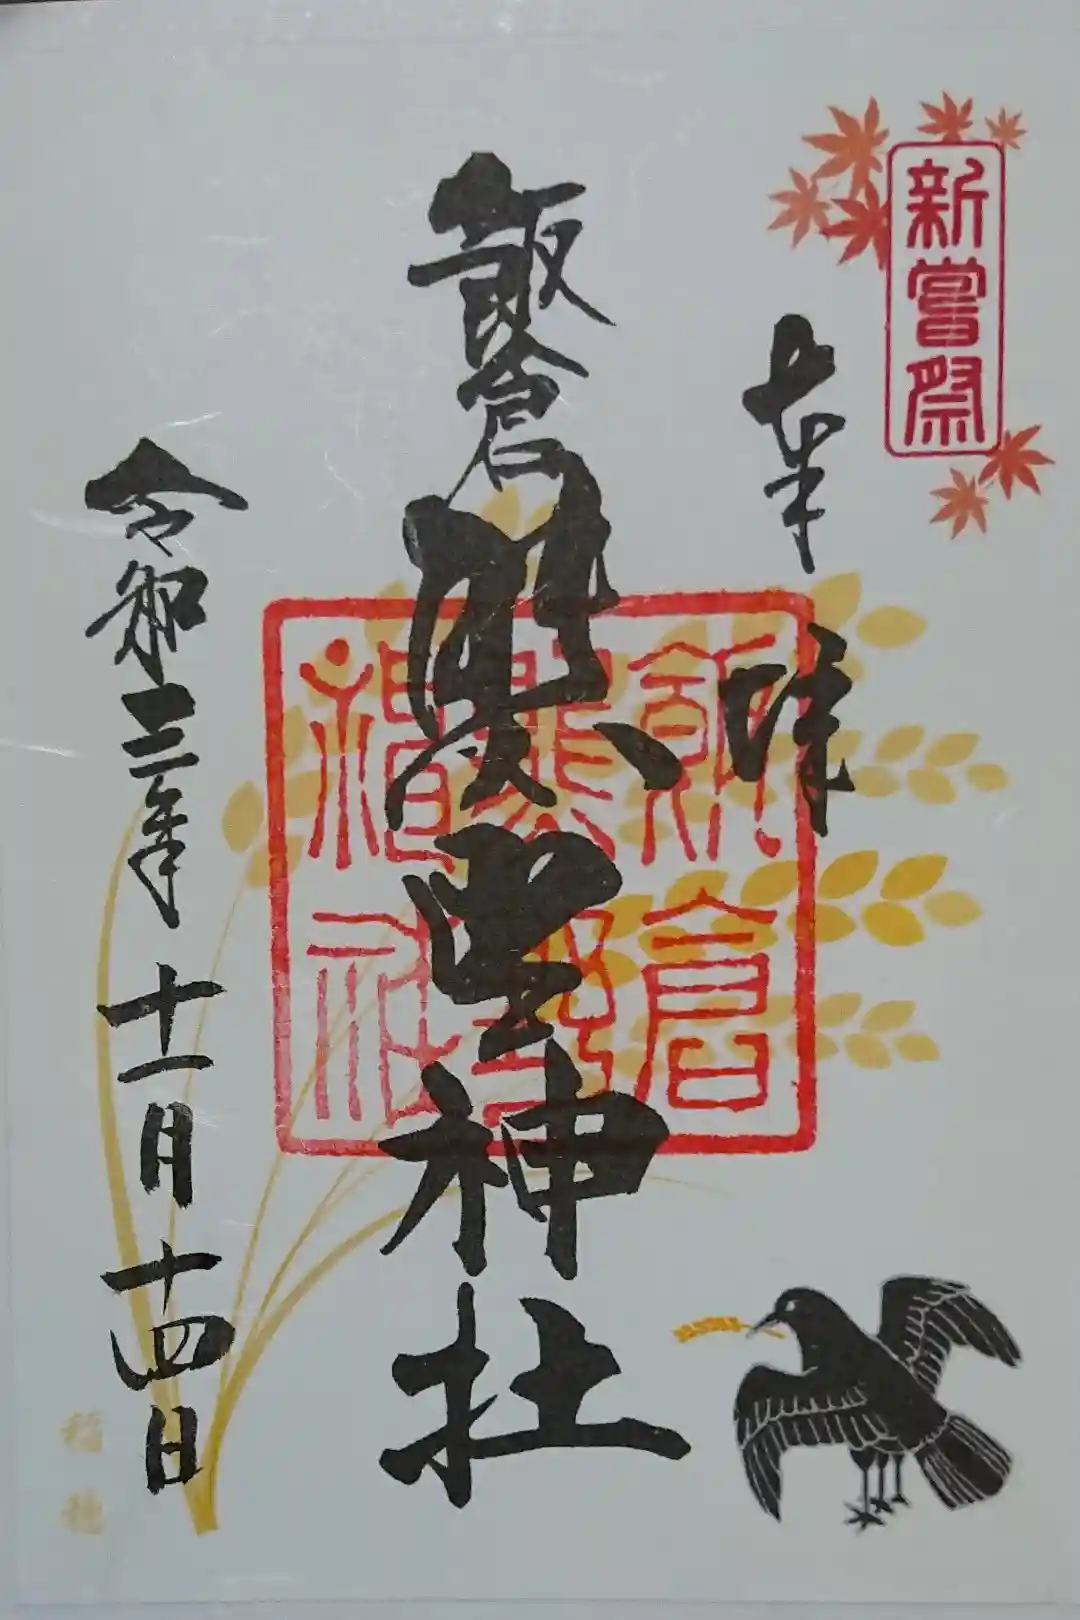 新嘗祭
奉拝
飯倉
熊野神社
令和三年十一月十四日
飯倉
熊野
神社
稲穂